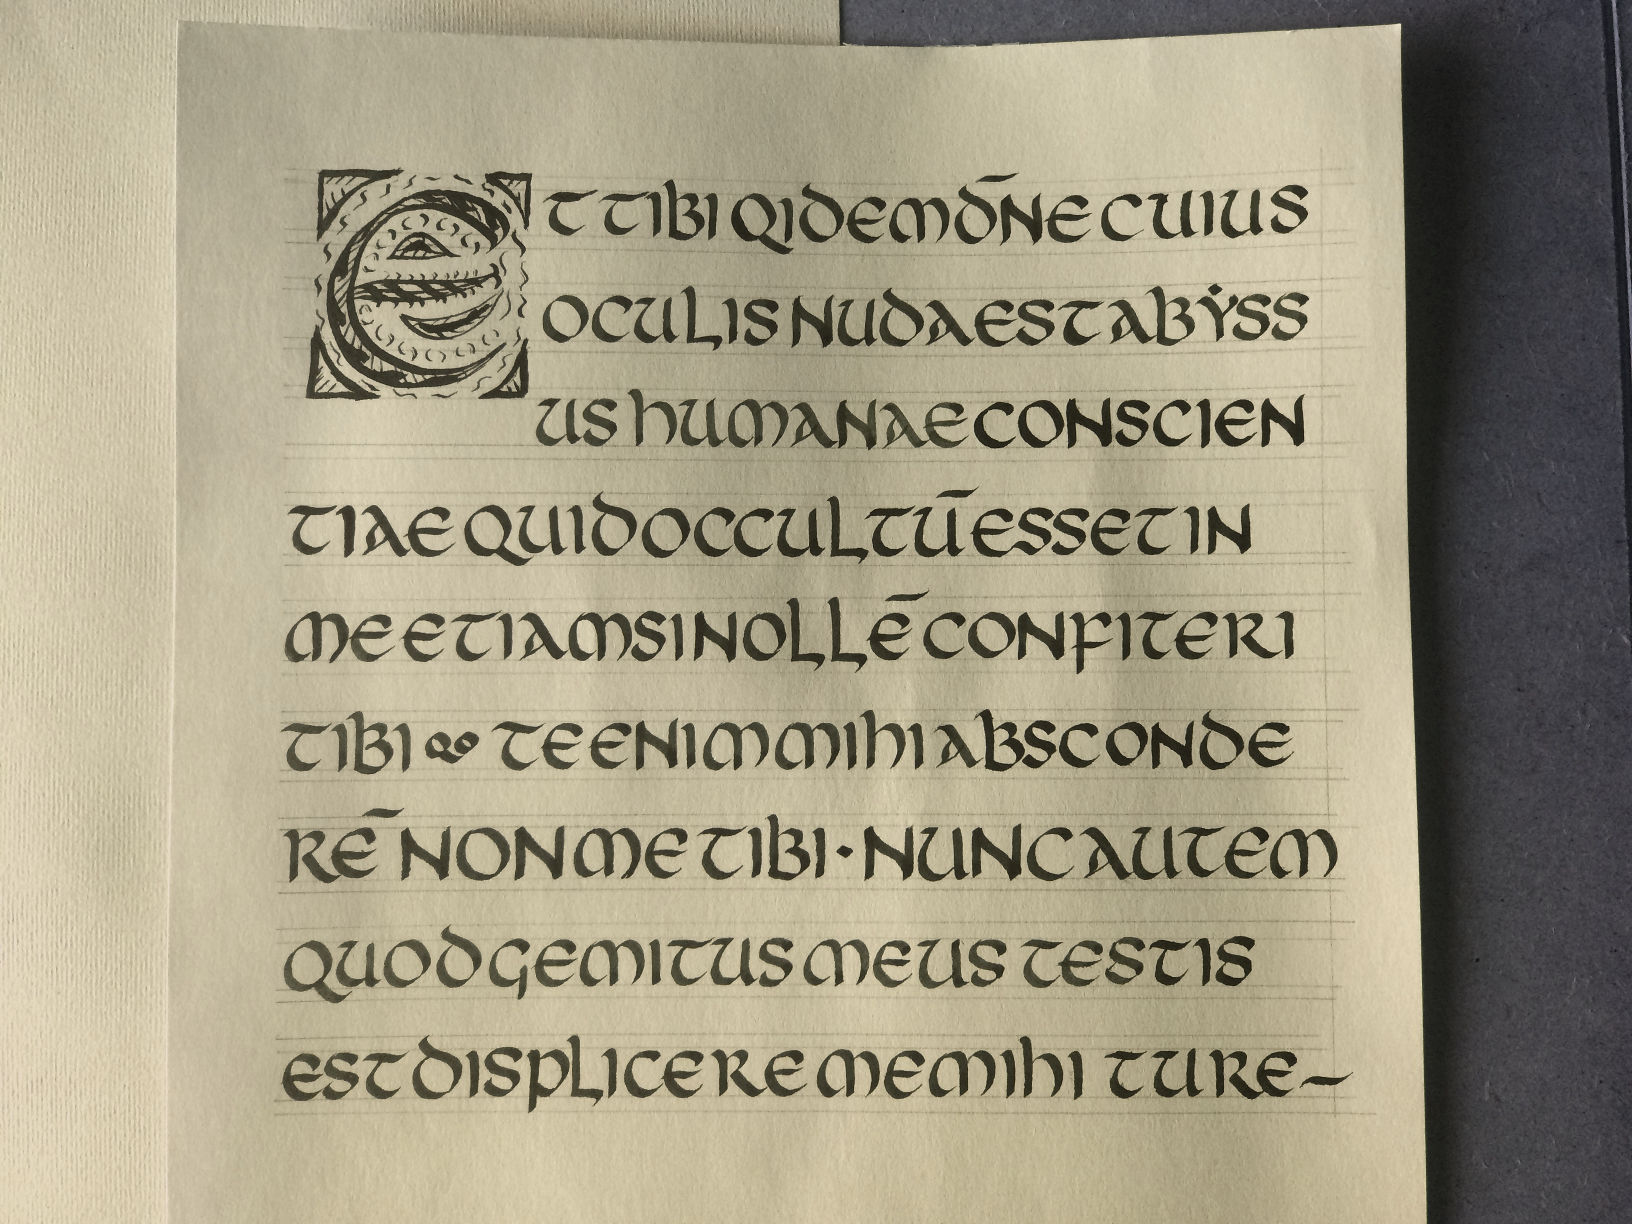 ET TIBI QIDEM DN̄E CUIUS
OCULIS NUDA EST ABẎSS
US HUMANAE CONSCIEN
TIAE QUID OCCULTŪ ESSET IN
ME ETIAMSI NOLLĒ CONFITERI
TIBI & TE ENIM MIHI ABSCONDE
RĒ NON ME TIBI · NUNC AUTEM
QUOD GEMITUS MEUS TESTIS
EST DISPLICERE ME MIHI TU RE–